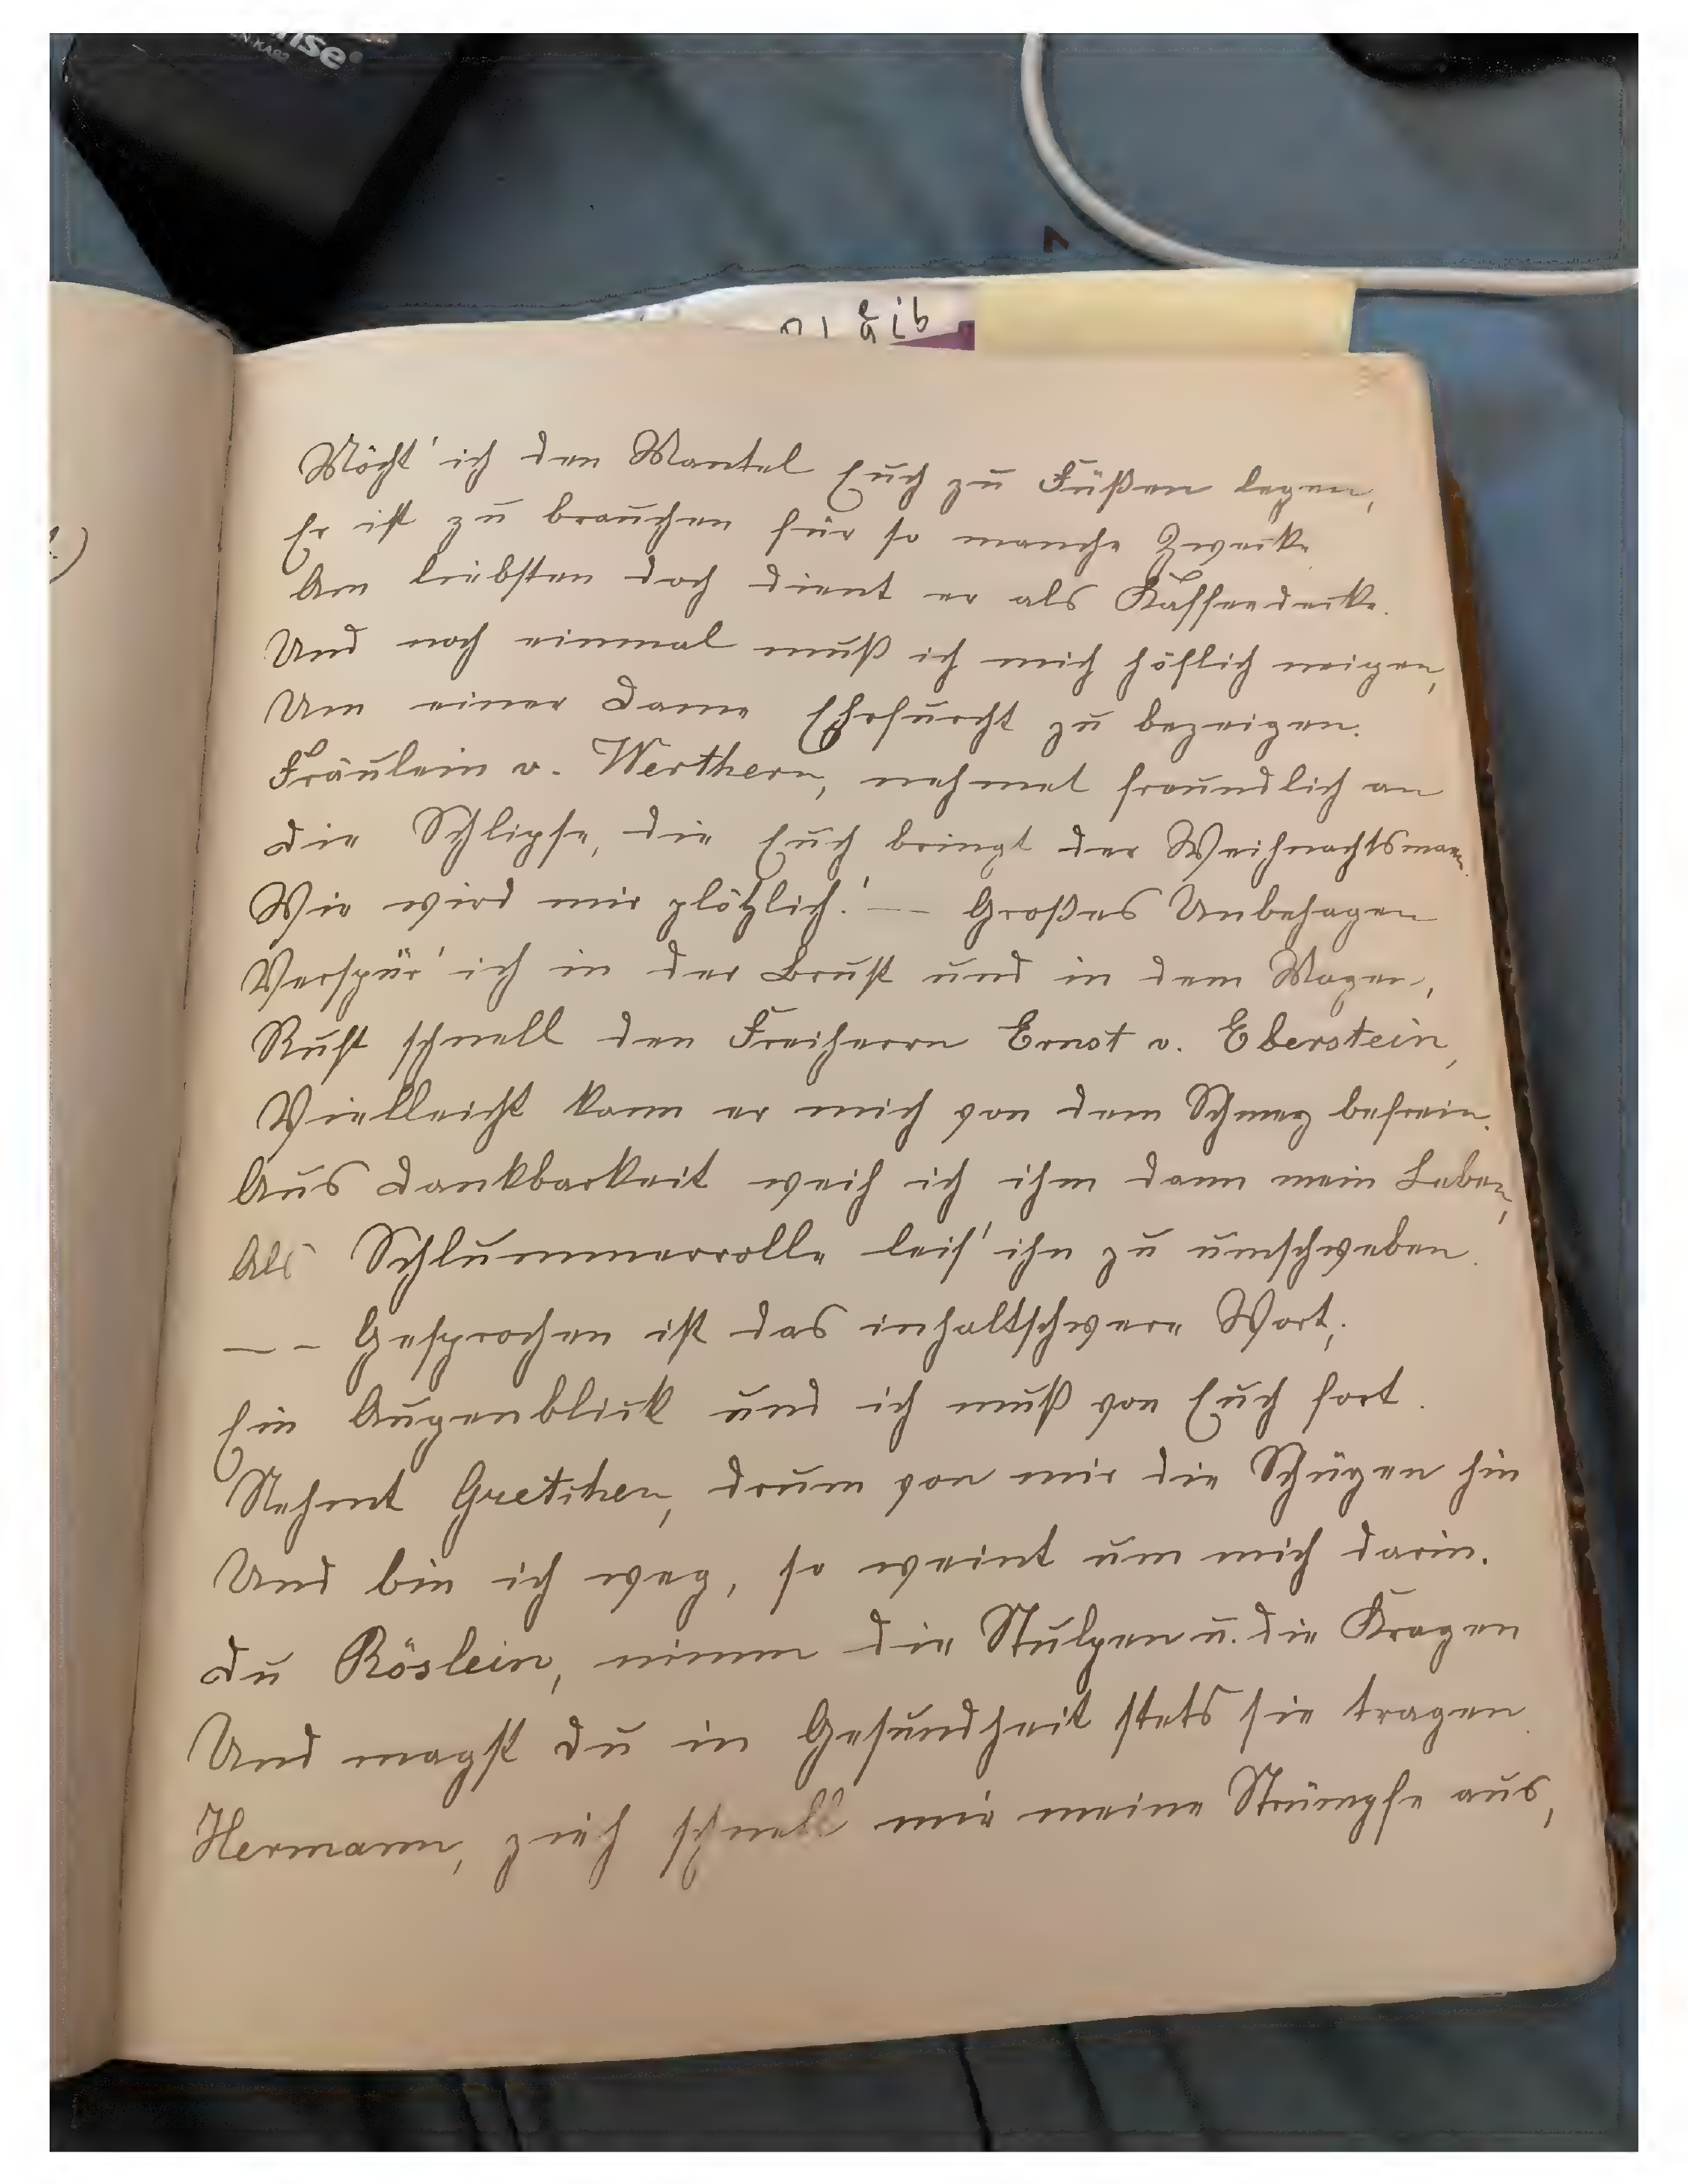 Möcht' ich den Mantel Euch zu Füßen legen,
Er ist zu brauchen für so manche Zwecke
Am liebsten doch dient er als Kaffeedecke.
Und noch einmal muß ich mich höflich neigen,
Um einer Dame Ehrfurcht zu bezeigen.
Fräulein v. Werthern, nehmet freundlich an
Die Schlipse, die Euch bringt der Weihnachtsmann.
Wie wird mir plötzlich! — Großes Unbehagen
Verspür' ich in der Brust und in dem Magen,
Ruft schnell den Freiherrn Ernst v. Eberstein,
Vielleicht kann er mich von dem Schmerz befrein.
Aus Dankbarkeit weih ich ihm dann mein Leben,
Als Schlummerrolle leis' ihn zu umschweben.
— – Gesprochen ist das inhaltschwere Wort;
Ein Augenblick und ich muß von Euch fort.
Nehmt Gretchen, drum von mir die Schürzen hin
Und bin ich weg, so weint um mich darin.
Du Röslein, nimm die Stulpen u. die Kragen
Und magst du in Gesundheit stets sie tragen.
Hermann, zieh schnell mir meine Strümpfe aus,